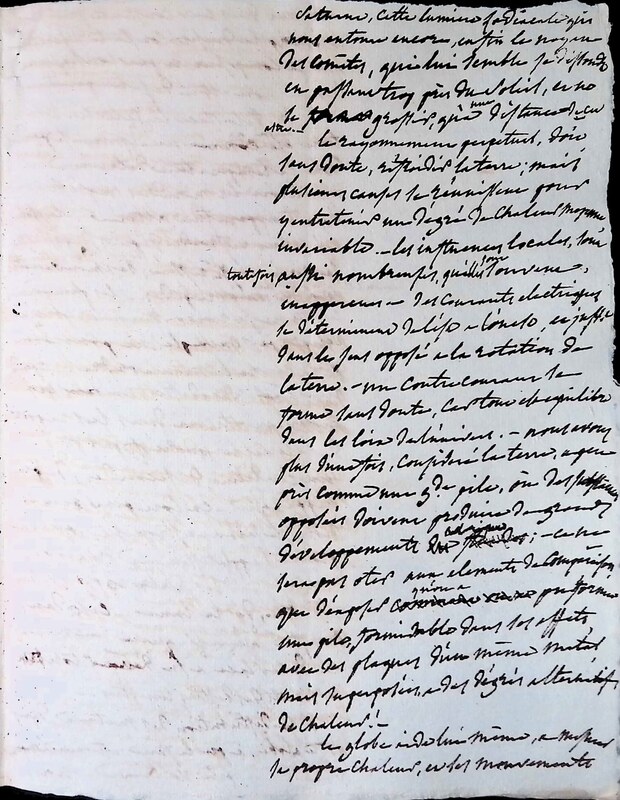 Saturne, cette lumière zodiacale qui
nous entoure encore, enfin le noyau
des comètes, qui lui semble se dissoudre
en passant trop près du soleil, et ne
se grossir, qu'à une distance de cet
astre. —
le rayonnement perpétuel, doit
sans doute, refroidir la terre; mais
plusieurs causes se reunissent pour
y entretenir un degré de chaleur moyenne
invariable. — les influences locales, sont
toutefois aussi nombreuses, qu'elles sont souvent,
inapperçues — des courants electriques
se déterminent de l'est a l'ouest, et juste
dans le sens opposé a la rotation de
la terre. — un contre courant se
forme sans doute, car tout est equilibre
dans les loix de l'univers. — nous avons
plus d'une fois, considéré la terre, a peu
près comme une gde pile, où des substances
opposées doivent produire de grands
développements ; — ce ne
sera pas oter aux elements de comparaison
que d'exposer qu'on a pu former
une pile, formidable dans ses effets,
avec des plaques d'un même métal
mais superposées, a des dégrés alternatifs
de chaleur! —
le globe a de lui même, a mesure
sa propre chaleur, et ses mouvements